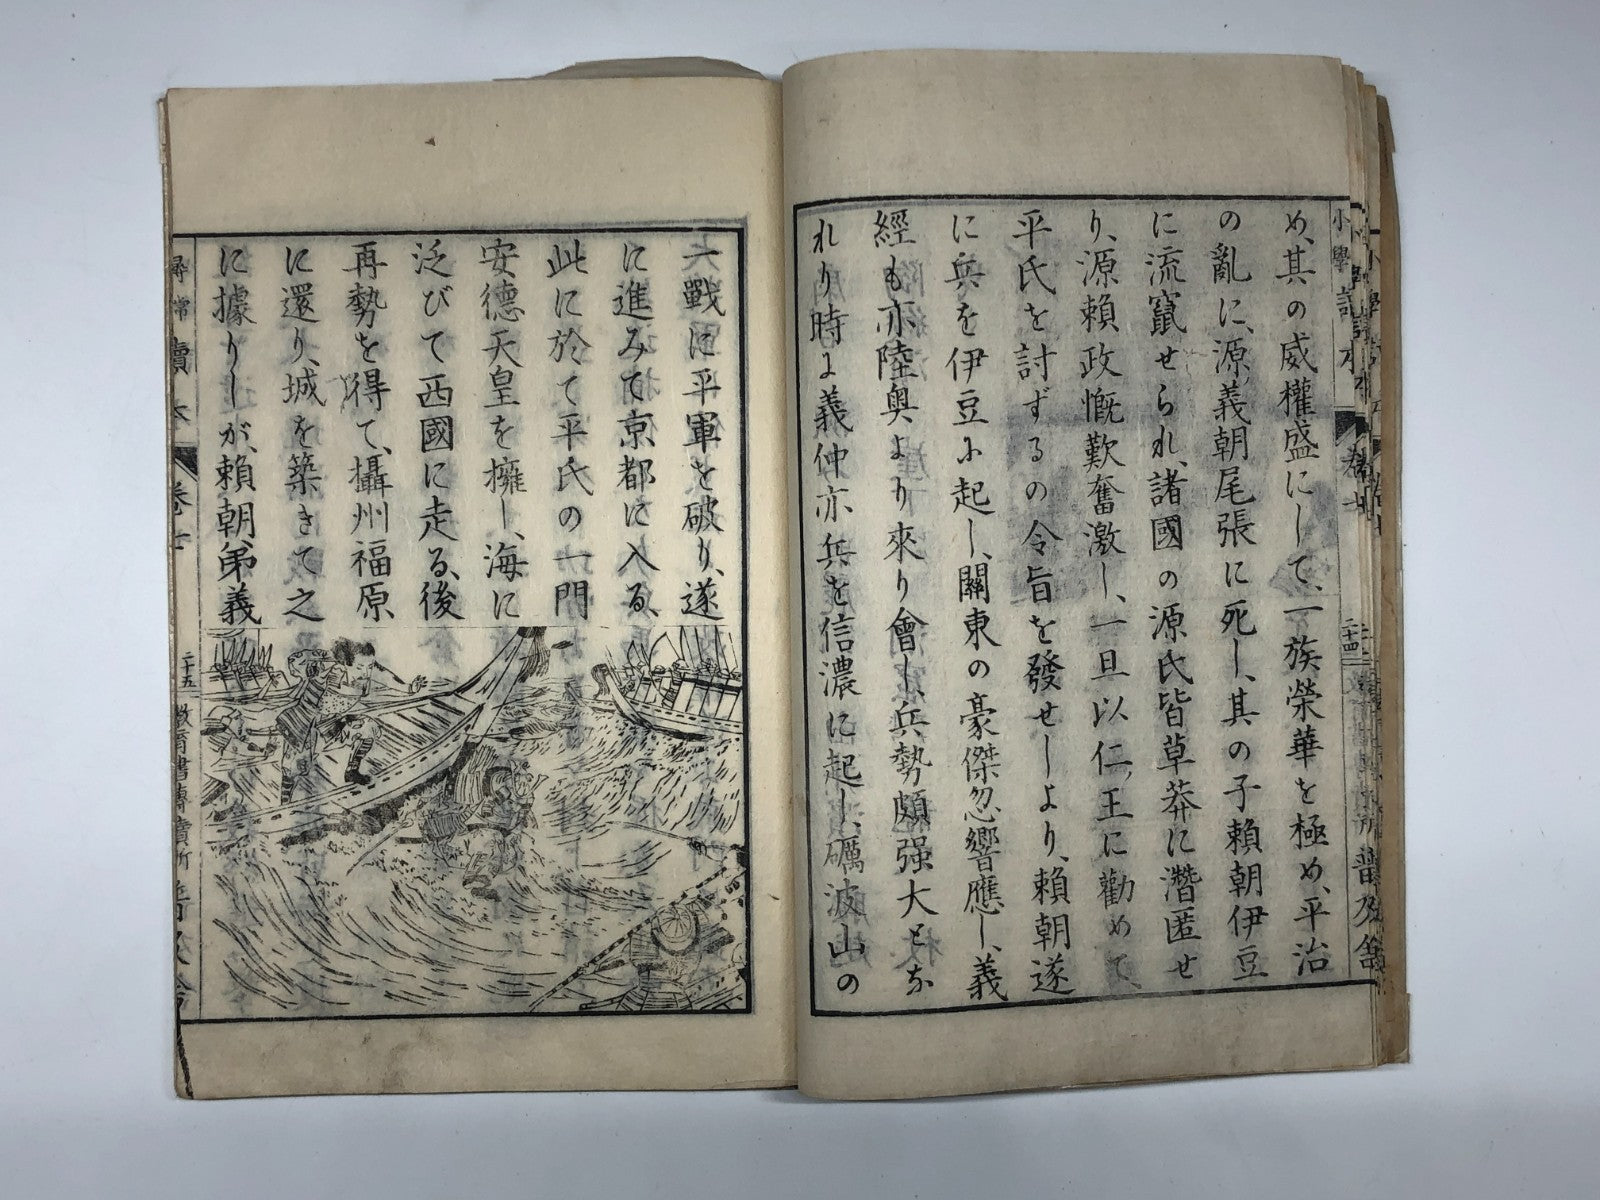 め、其の威權盛にして、一族榮華を極め、平治
の亂に、源義朝尾張に死し、其の子賴朝伊豆
に流竄せられ、諸國の源氏皆草莽に潛匿せ
り、源賴政慨歎奮激し、一旦以仁王に勸めて、
平氏を討ずるの令旨を發せしより、賴朝遂
に兵を伊豆に起し、關東の豪傑忽響應し、義
經も亦陸奥より來り會し、兵勢頗强大となれ
れり時に義仲亦兵を信濃に起し、礪波山の
大戰に平軍を破り、遂
に進みて京都に入る、
此に於て平氏の一門
安德天皇を擁し、海に
泛びて西國に走る、後
再勢を得て、攝州福原
に還り、城を築きて之
に據りしが、賴朝、弟義
小學讀本
卷七
二十四
普及舍
尋常
讀本
卷七
二十五